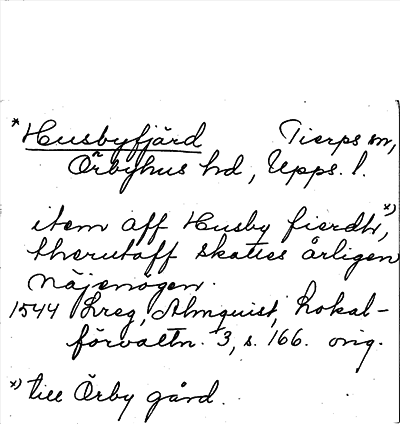 *Husbyfjärd Tierps sn,
Örbyhus hd, Upps. l.
item aff Husby fierdt, x)
therutaff skattes årligen
näjenögen.
1544 Lreg, Almquist, Lokal-
förvaltn. 3, s. 166. orig.
x) till Örby gård.